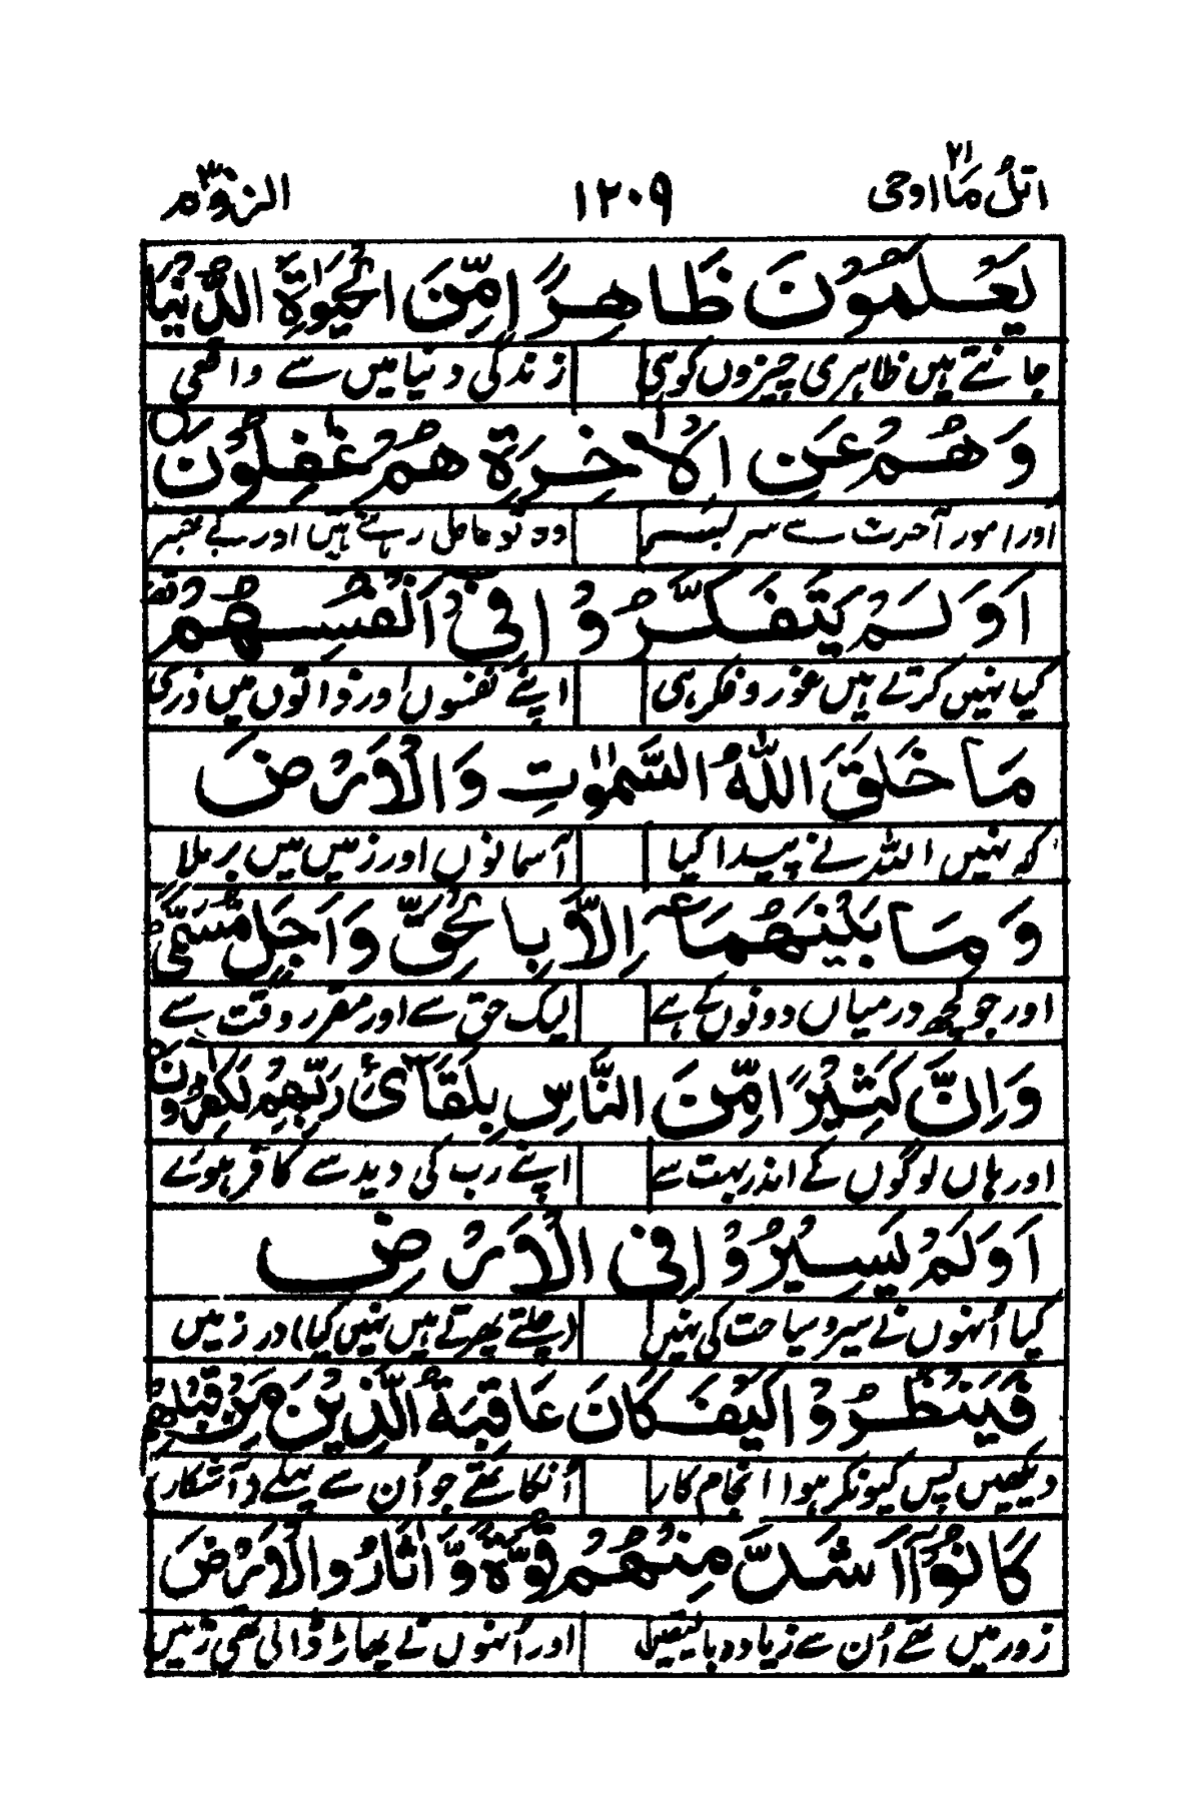 اتل ما اوحی ۲۱ ۱۲۰۹ الروم ۳۰
يَعْلَمُوْنَ ظَاهِرًا مِّنَ الْحَيٰوةِ الدُّنْيَا
جانتے ہیں ظاہری چیزوں کو ہی زندگی دنیا میں سے واقعی
وَهُمْ عَنِ الْاٰخِرَةِ هُمْ غٰفِلُوْنَ
اور امور آخرت سے سر بسر وہ تو غافل رہتے ہیں اور بے خبر
اَوَلَمْ يَتَفَكَّرُوْا فِيْ اَنْفُسِهِمْ
کیا نہیں کرتے ہیں غور و فکر ہی اپنے نفسوں اور ذاتوں میں ذری
مَا خَلَقَ اللّٰهُ السَّمٰوٰتِ وَالْاَرْضَ
کہ نہیں اللہ نے پیدا کیا آسمانوں اور زمیں میں برملا
وَمَا بَيْنَهُمَآ اِلَّا بِالْحَقِّ وَاَجَلٍ مُّسَمًّى
اور جو کچھ درمیاں دونوں کے ہے لیک حق سے اور مقرر وقت سے
وَاِنَّ كَثِيْرًا مِّنَ النَّاسِ بِلِقَآئِ رَبِّهِمْ لَكٰفِرُوْنَ
اور ہاں لوگوں کے اندر بہت سے اپنے رب کی دید سے کافر ہوئے
اَوَلَمْ يَسِيْرُوْا فِي الْاَرْضِ
کیا اُنہوں نے سیر و سیاحت کی نہیں (چلتے پھرتے ہیں نہیں کیا) در زمیں
فَيَنْظُرُوْا كَيْفَ كَانَ عَاقِبَةُ الَّذِيْنَ مِنْ قَبْلِهِمْ
دیکھیں پس کیونکر ہوا انجام کار اُنکا تھے جو اُن سے پہلے (آشکار)
كَانُوْٓا اَشَدَّ مِنْهُمْ قُوَّةً وَّاَثَارُوا الْاَرْضَ
زور میں تھے اُن سے زیادہ بالیقیں اور اُنہوں نے پھاڑ ڈالی تھی زمیں